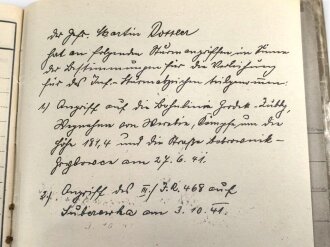 Der Gefr. Martin Rossler
hat an folgenden Sturmangriffen im Sinne
der Bestimmungen für die Verleihung
des Inf.-Sturmabzeichen teilgenommen:
1) Angriff auf die Bahnlinie
Wegnahme von Kämpfe um die
Höhe 181,4 und die Straße
am 27.6.41.
2) Angriff des II./ J.R. 468 auf
am 3.10.41.